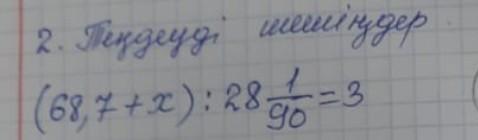 2. Теңдеуді шешіңдер.
(68,7 + x) : 28 1/90 = 3